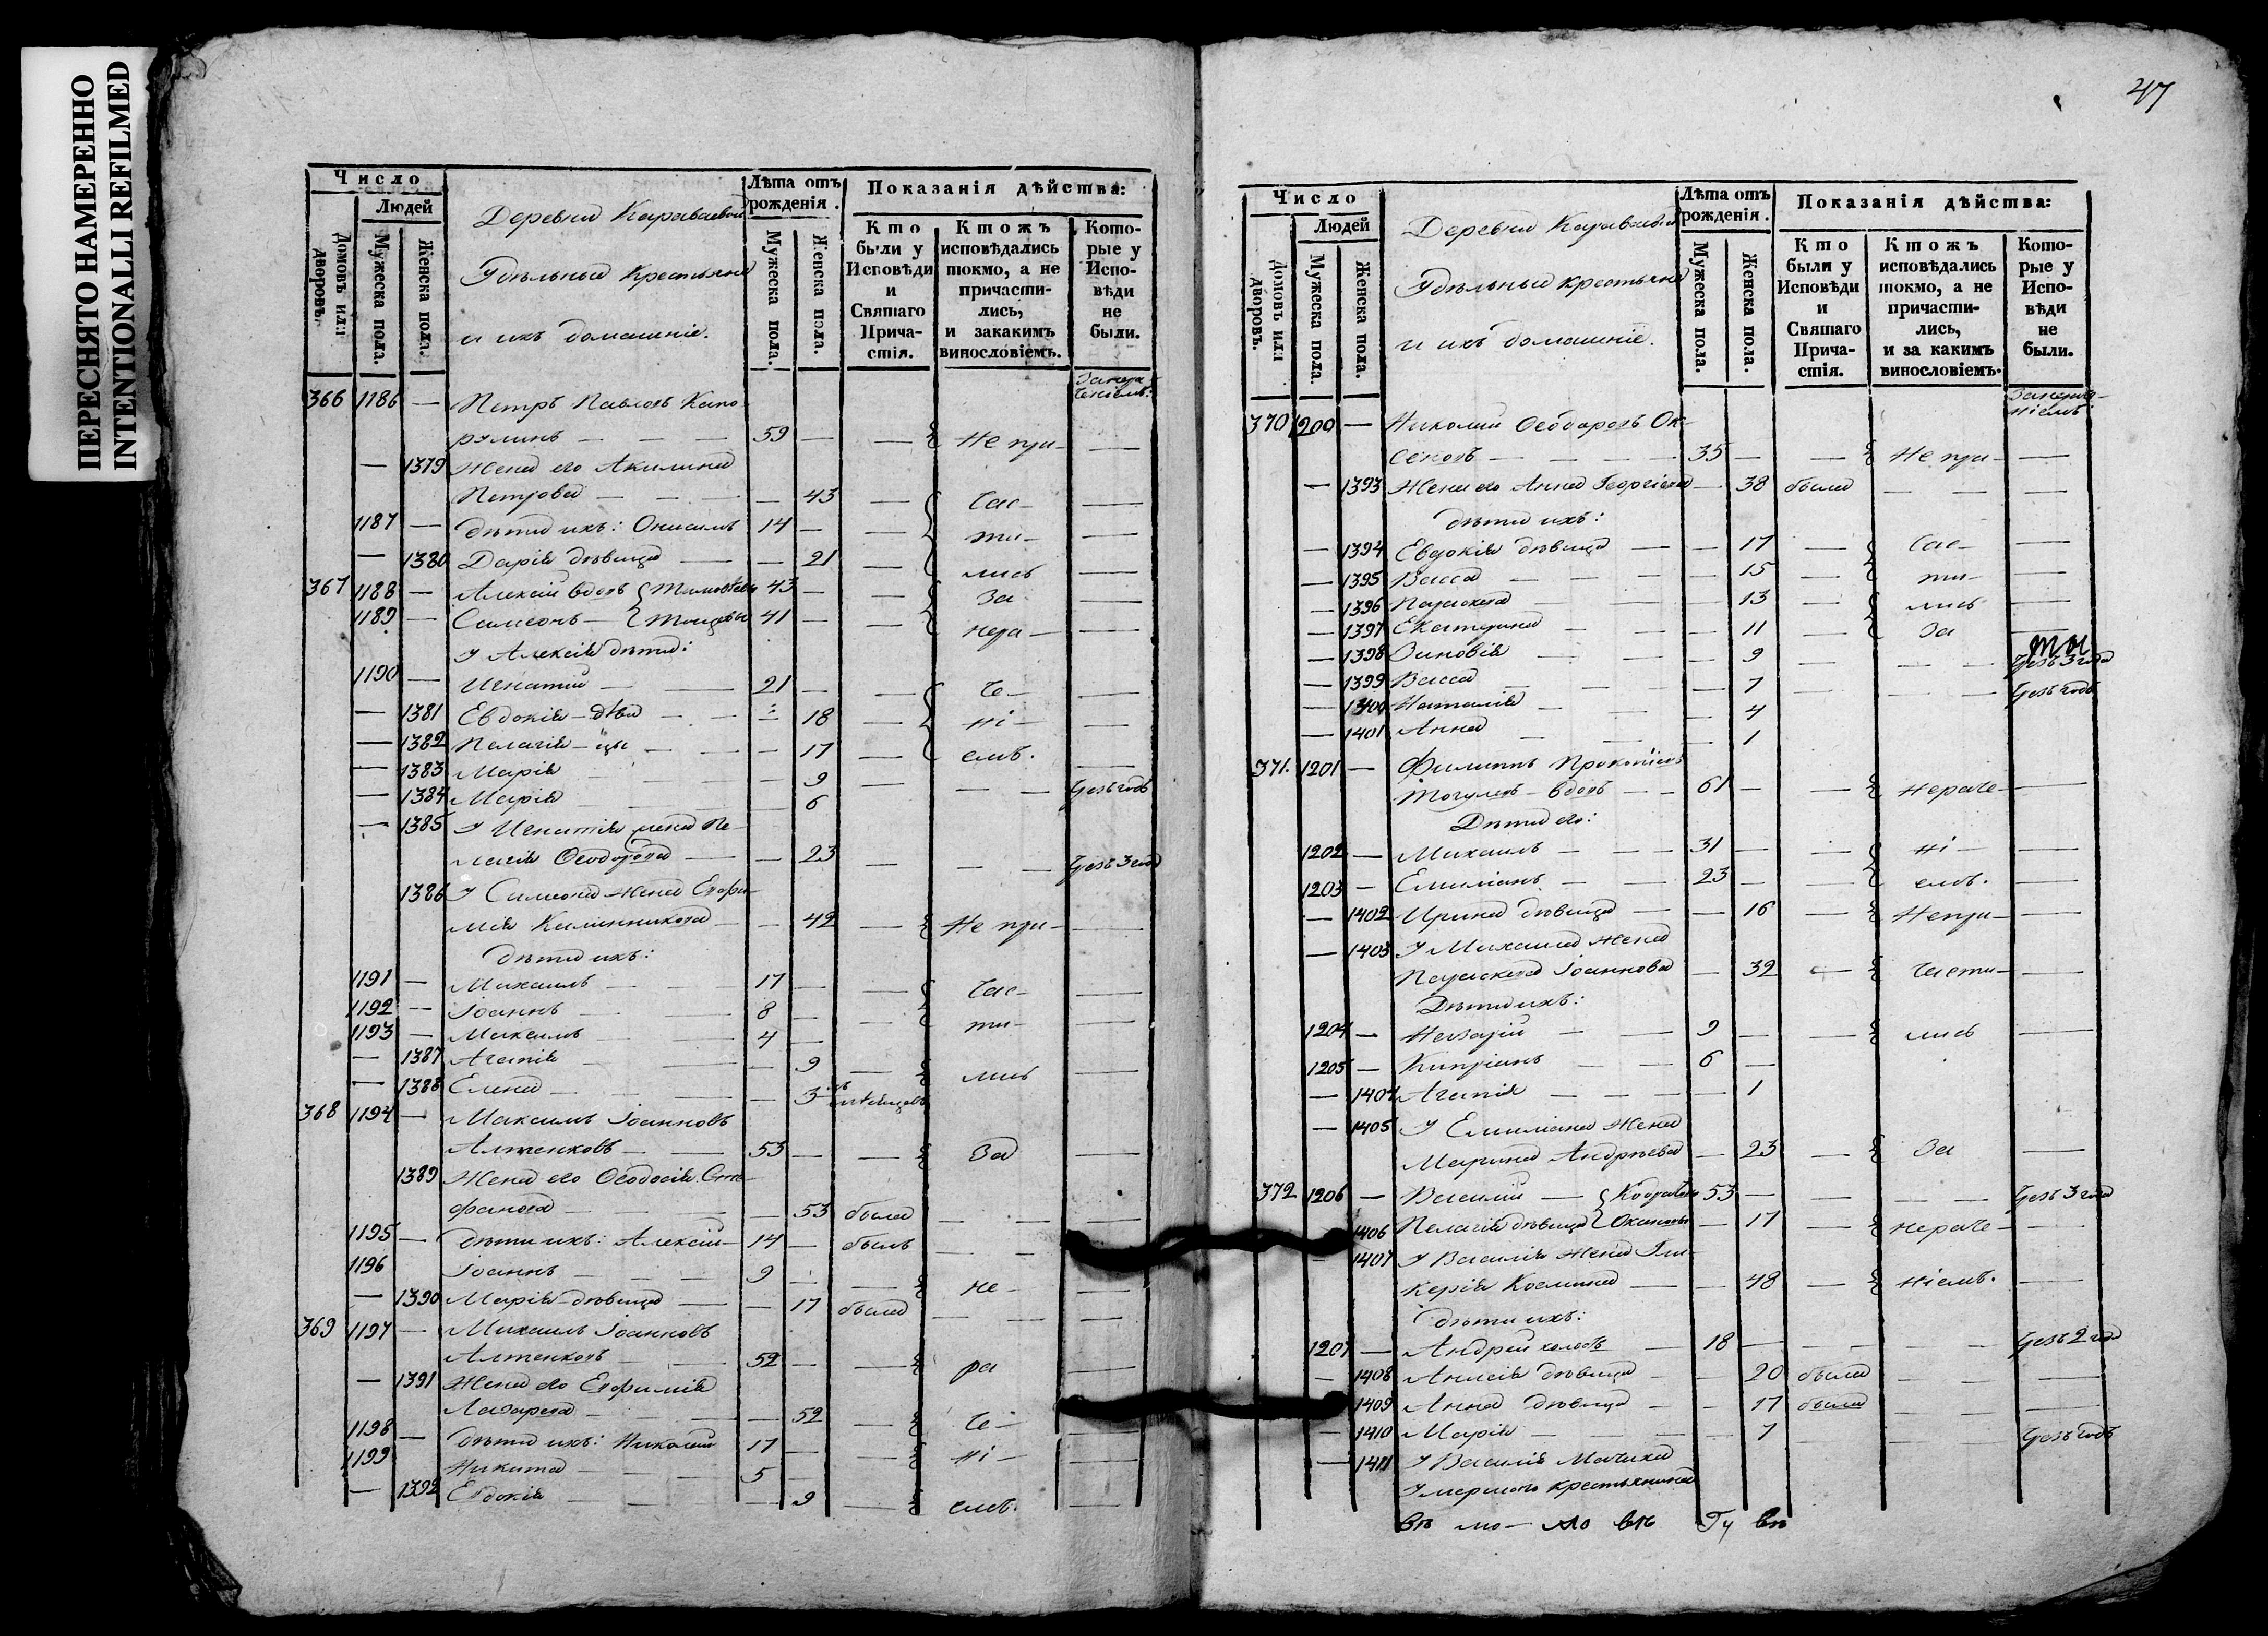 ПЕРЕСНЯТО НАМЕРЕННО
INTENTIONALLI REFILMED
Число
Людей
Домовъ или дворовъ.
Мужеска пола.
Женска пола.
Деревни Караваевой
Удѣльныя Крестьяне
и ихъ домашніе.
Лѣта отъ рожденія.
Мужеска пола.
Женска пола.
Показанія дѣйства:
Кто были у Исповѣди и Святаго Прича-стія.
Ктожъ исповѣдались токмо, а не причасти-лись, и закакимъ винословіемъ.
Кото-рые у Испо-вѣди не были.
366 1186 — Петръ Павловъ
— — 59 — — Не при- —
— 1379 Жена его Акилина
Петрова — — — 43 — час- —
1187 — дѣти ихъ: Онисимъ 14 — — ти- —
— 1380 Дарія дѣвица — — 21 — лись —
367 1188 — Алексій вдовъ 43 — — За —
1189 — Симеонъ — 41 — — нера- —
У Алексія дѣти:
1190 — Игнатій — — 21 — — че- —
— 1381 Евдокія – дѣви — 18 — ні- —
— 1382 Пелагія – цы — — — 17 — емъ. —
— 1383 Марія — — — 9 — — — Чрезъ годъ
— 1384 Марія — — — 6
— 1385 У Игнатія жена Пе-
лагія Ѳеодорова — — 23 — — — Чрезъ 3 года
1386 У Симеона жена Евфи-
мія Калинникова — — 42 — Не при- —
дѣти ихъ:
1191 — Михаилъ — — 17 — — час- —
1192 — Іоаннъ — — 8 — — ти- —
1193 — Максимъ — — 4 —
— 1387 Агапія — — — 9 — лись —
— 1388 Елена — — — 3
368 1194 — Максимъ Іоанновъ
Алтенковъ — — 53 — — За —
1389 Жена его Ѳеодосія Сте-
фанова — — — 53 была — — —
1195 — дѣти ихъ: Алексій — 14 — былъ — —
1196 Іоаннъ — — — 9 — — не- —
— 1390 Марія – дѣвица — — 17 была — — —
369 1197 — Михаилъ Іоанновъ
Алтенковъ — — 52 — — ра —
— 1391 Жена его Евфимія
Лазарева — — — 52 — че- —
1198 — дѣти ихъ: Николай 17 — — ні- —
1199 Никита — — — 5 —
— 1392 Евдокія — — — 9 — емъ. —
47
Число
Людей
Домовъ или дворовъ.
Мужеска пола.
Женска пола.
Деревни Караваевой
Удѣльныя крестьяне
и ихъ домашніе.
Лѣта отъ рожденія.
Мужеска пола.
Женска пола.
Показанія дѣйства:
Кто были у Исповѣди и Святаго Прича-стія.
Ктожъ исповѣдались токмо, а не причасти-лись, и за какимъ винословіемъ.
Кото-рые у Испо-вѣди не были.
370 1200 — Николай Ѳеодоровъ Ок-
— — — 35 — — Не при- —
— 1393 Жена его Анна Георгіева — 38 была — — —
дѣти ихъ:
— 1394 Евдокія дѣвица — — 17 — час- —
— 1395 Васса — — — — 15 — ти- —
— 1396 Параскева — — — 13 — лись —
— 1397 Екатерина — — — 11 — За —
— 1398 Зиновія — — — 9 — — — Чрезъ 3 года
— 1399 Васса — — — 7 — — — Чрезъ годъ
— 1400 Наталія — — — 4
— 1401 Анна — — — 1
371. 1201 — Филиппъ Прокопіевъ
вдовъ — — 61 — — нераче- —
Дѣти его:
1202 — Михаилъ — — — 31 — — ні — —
1203 — Емиліанъ — — 23 — — емъ. —
— 1402 Ирина дѣвица — — 16 — Непри- —
— 1403 У Михаила жена
Параскева Іоаннова — 32 — части- —
Дѣти ихъ:
1204 — Назарій — — 9 — — лись —
1205 — Кипріанъ — — 6 —
— 1404 Агапія — — — — 1
— 1405 У Емиліана Жена
Марина Андрѣева — 23 — За —
372 1206 — Василій — 53 — — — — Чрезъ 3 года
1406 Пелагія дѣвица — 17 — нераче- —
— 1407 У Василія жена Гли-
керія Космина — — 48 — ніемъ. —
дѣти ихъ:
1207 — Андрей холостъ — 18 — — — — Чрезъ 2 года
— 1408 Анисія дѣвица — — 20 была — — —
1409 Анна дѣвица — — 17 была — — —
— 1410 Марія — — — 7 — — Чрезъ годъ
— 1411 У Василія Мачиха
Умершаго крестьянина